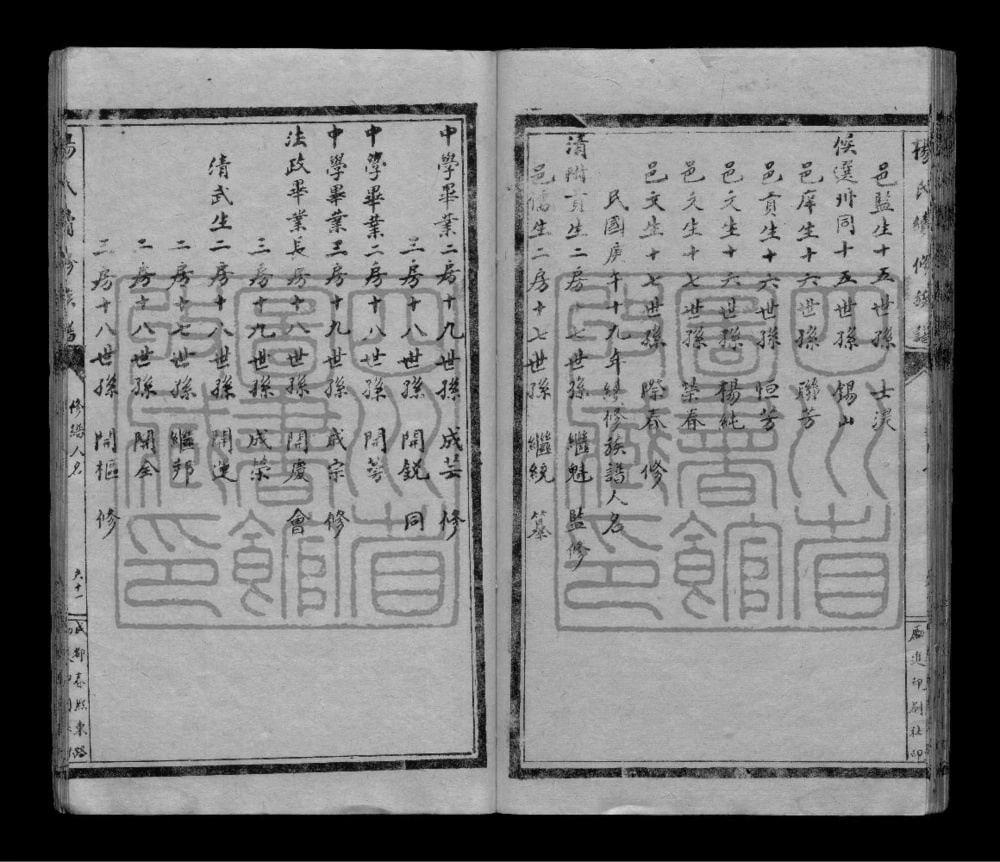 邑監生十五世孫 士浞
候選州同十五世孫 錫山
邑庠生十六世孫 聯芳
邑貢生十六世孫 恒芳
邑文生十六世孫 楊純
邑文生十七世孫 榮春
邑文生十七世孫 際春 修
民國庚午十九年續修族譜人名
清附貢生二房十七世孫 繼魁 監修
邑儒生二房十七世孫 繼統 纂
中學畢業二房十九世孫 成芸 修
三房十八世孫 開銳 同
中學畢業二房十八世孫 開萼
中學畢業三房十九世孫 成宗 修
法政畢業長房十八世孫 開慶 會
三房十九世孫 成榮
清武生二房十八世孫 開運
二房十七世孫 繼邦
二房十八世孫 開全
三房十八世孫 開樞 修
修譜人名
六十一
成都春熙東路
進印刷社印
四川省圖書館藏印